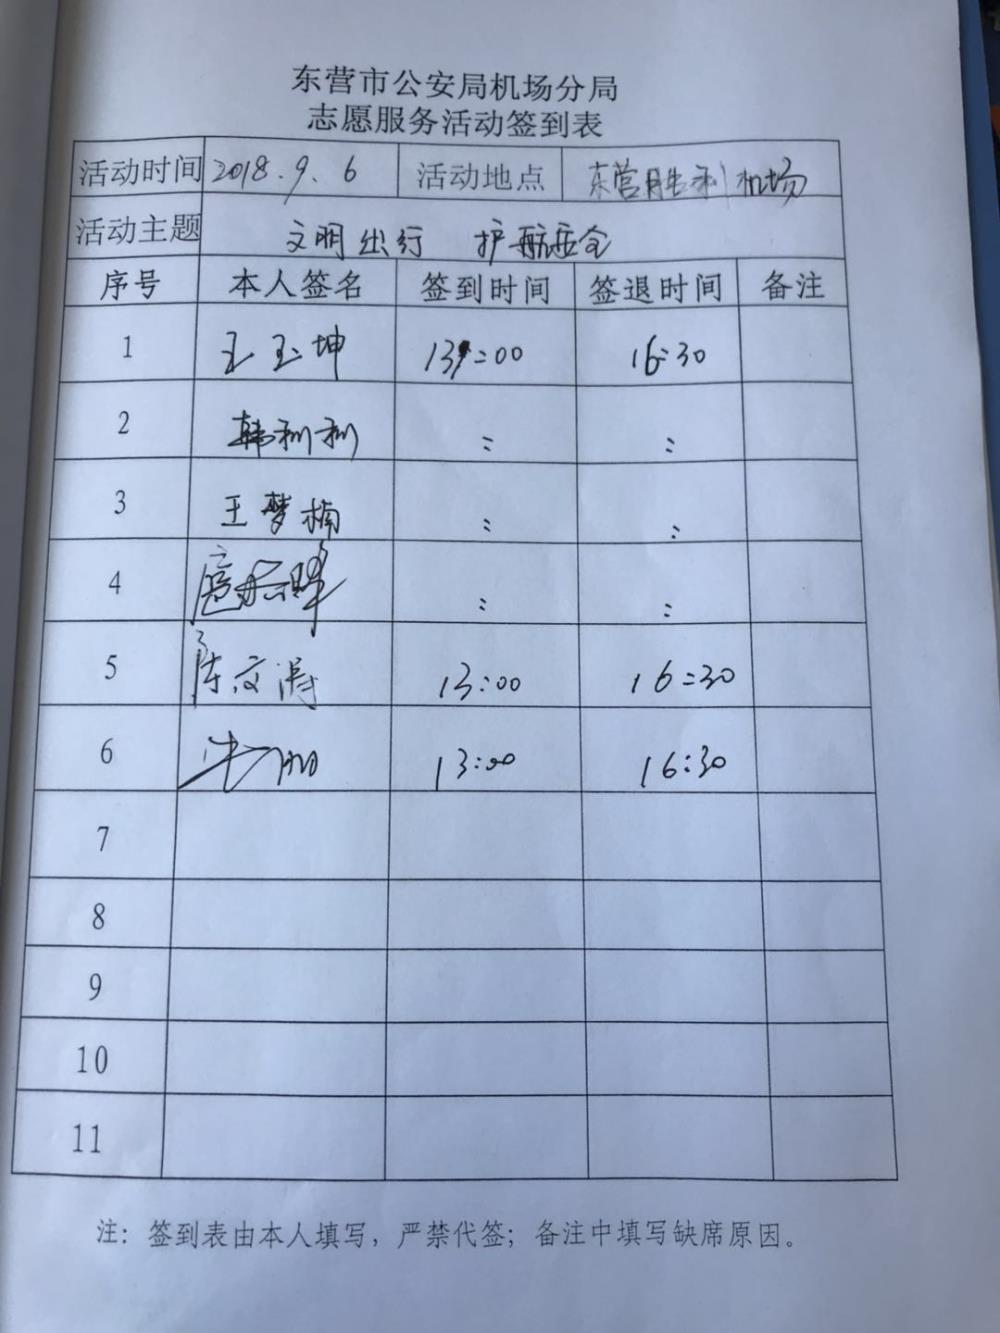 东营市公安局机场分局
志愿服务活动签到表
活动时间 2018.9.6 活动地点 东营胜利机场
活动主题 文明出行 护航安全
序号 本人签名 签到时间 签退时间 备注
1 王玉坤 13:00 16:30
2 韩利利 : :
3 王梦楠 : :
4 : :
5 陈文涛 13:00 16:30
6 13:00 16:30
7
8
9
10
11
注：签到表由本人填写，严禁代签；备注中填写缺席原因。